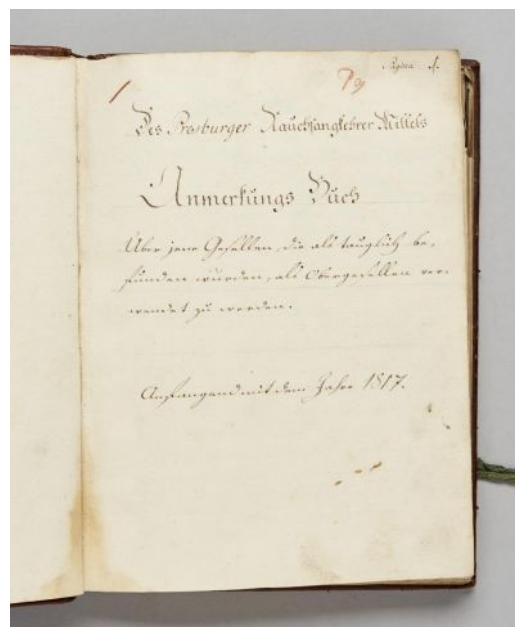 Pagina 1.
79
Des Presburger Rauchfangkehrer Mittels
Anmerkungs Buch
Über jene Gesellen, die als tauglich be„
funden wurden, als Obergesellen ver„
wendet zu werden.
Anfangend mit dem Jahre 1817.